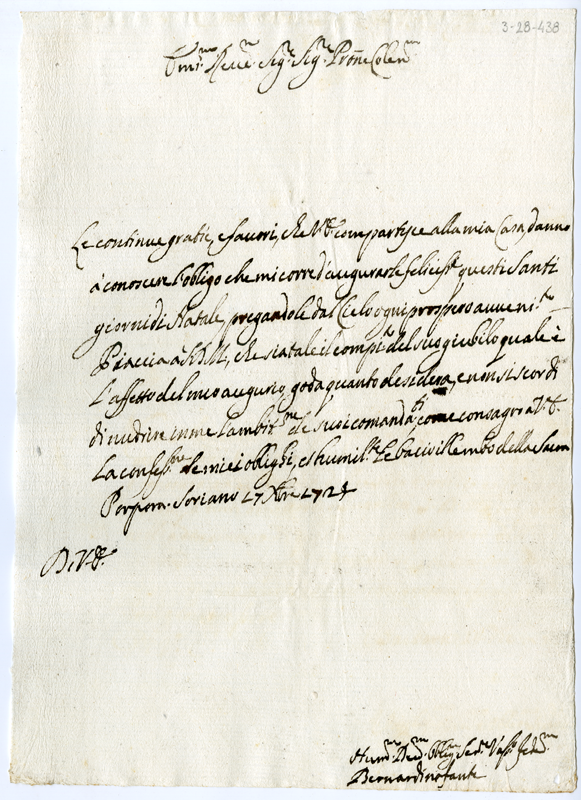 3-28-438
Em.mo Reue.mo Sig.r Sig.r Prōne Colen.mo
Le continue gratie, e fauori, che V.E. compartisce alla mia Casa, danno
à conoscere l'obligo che mi corre d'augurarle felicis.mi questi Santi
giorni di Natale, pregandole dal Cielo ogni prospero auueni.to
Piaccia à S.D.M., che sia tale il compi.to del suo giubilo quale è
l'affetto del mio augurio, goda quanto desidera, e non si scordi
di nudrire in me l'ambit.ne de suoi comanda.ti come consagro a V.E.
La confess.ne de miei oblighi, et humil.te Le bacio il lembo della Sacra
Porpora. Soriano 17 Xbre 1724
Di V.E.
Hum.mo Deu.mo Oblig.mo Ser.re Vass.o
Bernardino fante